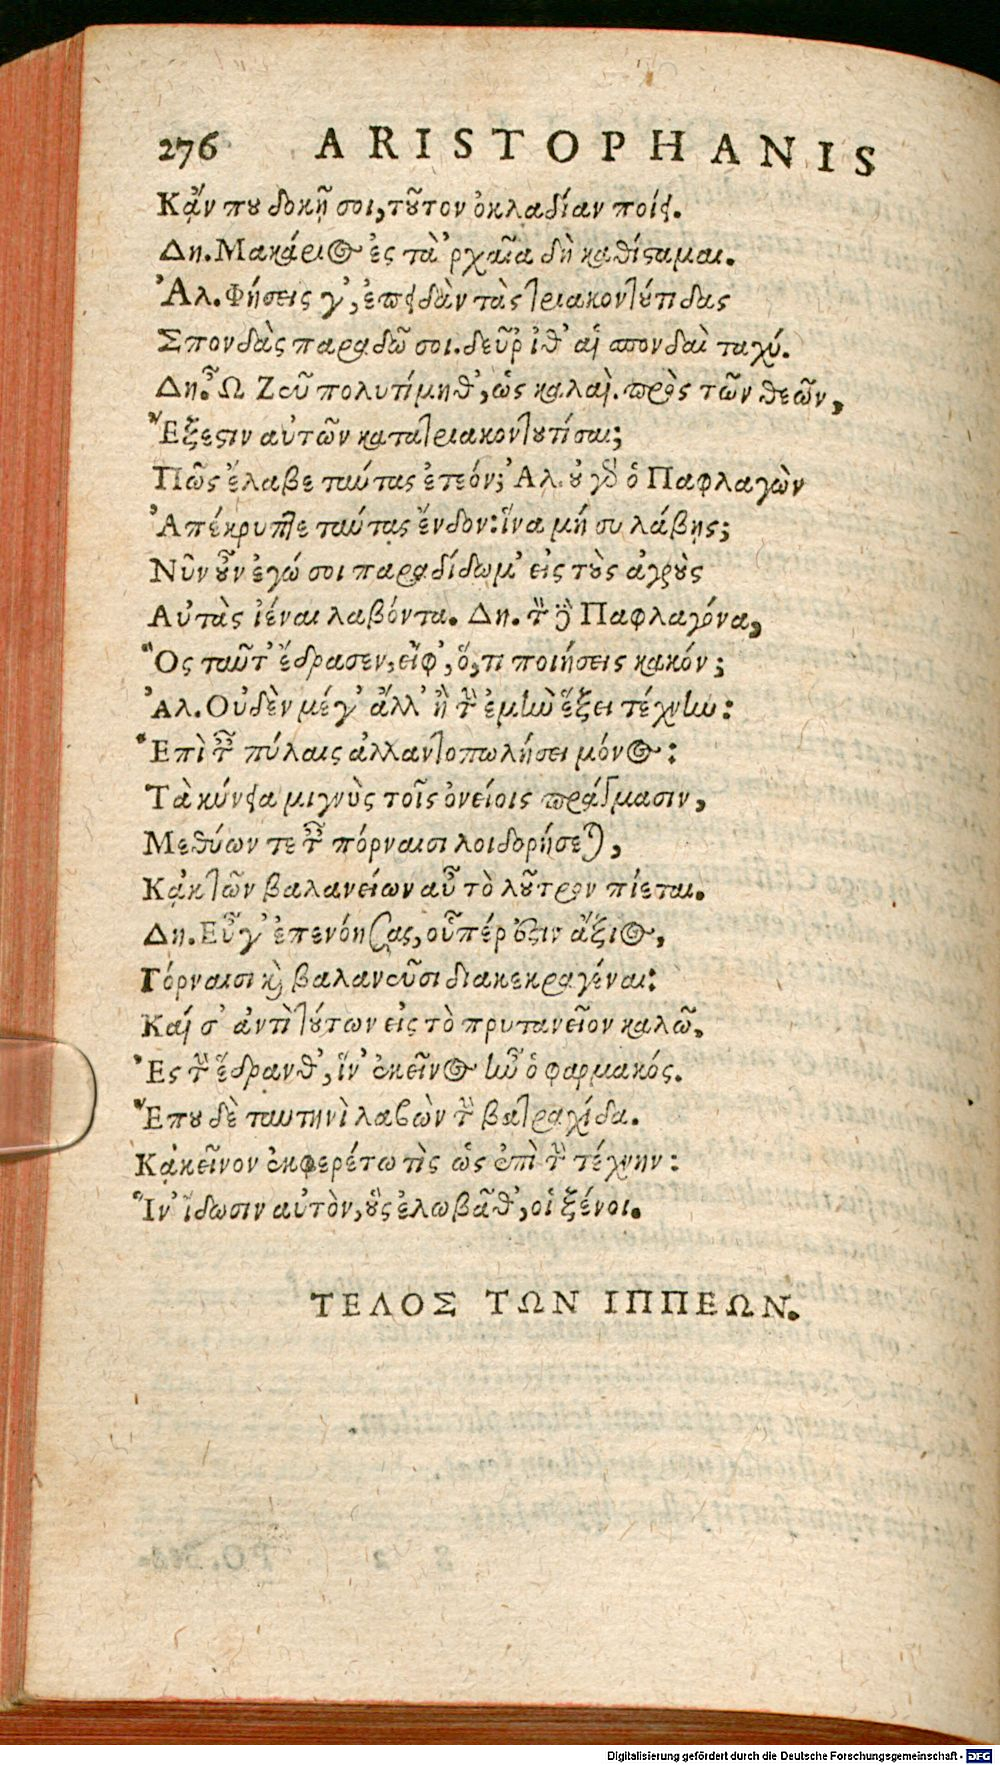 276 ARISTOPHANIS
Κᾄν που δοκῇ σοι, τοῦτον ὀκλαδίαν ποίει.
Δη. Μακάριος ἐς τὰ ῤχαῖα δὴ καθίσταμαι.
Ἀλ. Φήσεις γ', ἐπειδὰν τὰς τριακοντούτιδας
Σπονδὰς παραδῶ σοι. δεῦρ' ἴθ' αἱ σπονδαὶ ταχύ.
Δη. Ὦ Ζεῦ πολυτίμηθ', ὡς καλαὶ. πρὸς τῶν θεῶν,
Ἔξεστιν αὐτῶν κατατριακοντουτίσαι;
Πῶς ἔλαβε ταύτας ἐτεόν; Ἀλ. οὐ γὰρ ὁ Παφλαγὼν
Ἀπέκρυπτε ταύτας ἔνδον: ἵνα μή συ λάβῃς;
Νῦν οὖν ἐγώ σοι παραδίδωμ' εἰς τοὺς ἀγροὺς
Αὐτὰς ἰέναι λαβόντα. Δη. τὸν δὲ Παφλαγόνα,
Ὃς ταῦτ' ἔδρασεν, εἴφ', ὅ, τι ποιήσεις κακόν;
Ἀλ. Οὐδὲν μέγ' ἄλλ' ἢ τὴν ἐμὴν ἕξει τέχνην:
Ἐπὶ ταῖς πύλαις ἀλλαντοπωλήσει μόνος:
Τὰ κύνεια μιγνὺς τοῖς ὀνείοις πράγμασιν,
Μεθύων τε ταῖς πόρναισι λοιδορήσεται,
Κᾀκ τῶν βαλανείων αὖ τὸ λοῦτρον πίεται.
Δη. Εὖ γ' ἐπενόησας, οὗπέρ ἐστιν ἄξιος,
Πόρναισι καὶ βαλανεῦσι διακεκραγέναι:
Καί σ' ἀντὶ τούτων εἰς τὸ πρυτανεῖον καλῶ,
Ἐς τὴν ἕδρανθ', ἵν' ἐκεῖνος ἦν ὁ φαρμακός.
Ἔπου δὲ ταυτηνὶ λαβὼν τὴν βατραχίδα.
Κᾀκεῖνον ἐκφερέτω τὶς ὡς ἐπὶ τὴν τέχνην:
Ἵν' ἴδωσιν αὐτὸν, οὓς ἐλωβᾶθ', οἱ ξένοι.
ΤΕΛΟΣ ΤΩΝ ΙΠΠΕΩΝ.
Digitalisierung gefördert durch die Deutsche Forschungsgemeinschaft - DFG